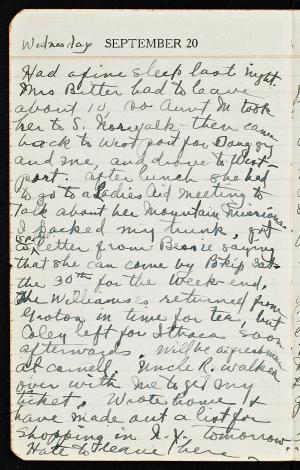 Wednesday SEPTEMBER 20
Had a fine sleep last night.
Mrs Bitter had to leave
about 10, so Aunt M took
her to S. Norwalk - then came
back to Westport for
and me, and drove to West-
port. After lunch she had
to go to a Ladies Aid meeting to
talk about her Mountain Missions.
I packed my trunk, got
a letter from Bessie saying
that she can come by Sat-
the 30th for the week-end.
The Williamses returned from
Groton in time for tea, but
left for Ithaca soon
afterwards. Will be a freshman
at Cornell. Uncle R. walked
over with me to get my
ticket. Wrote home &
have made out a list for
shopping in N.Y. tomorrow.
Hate to leave here